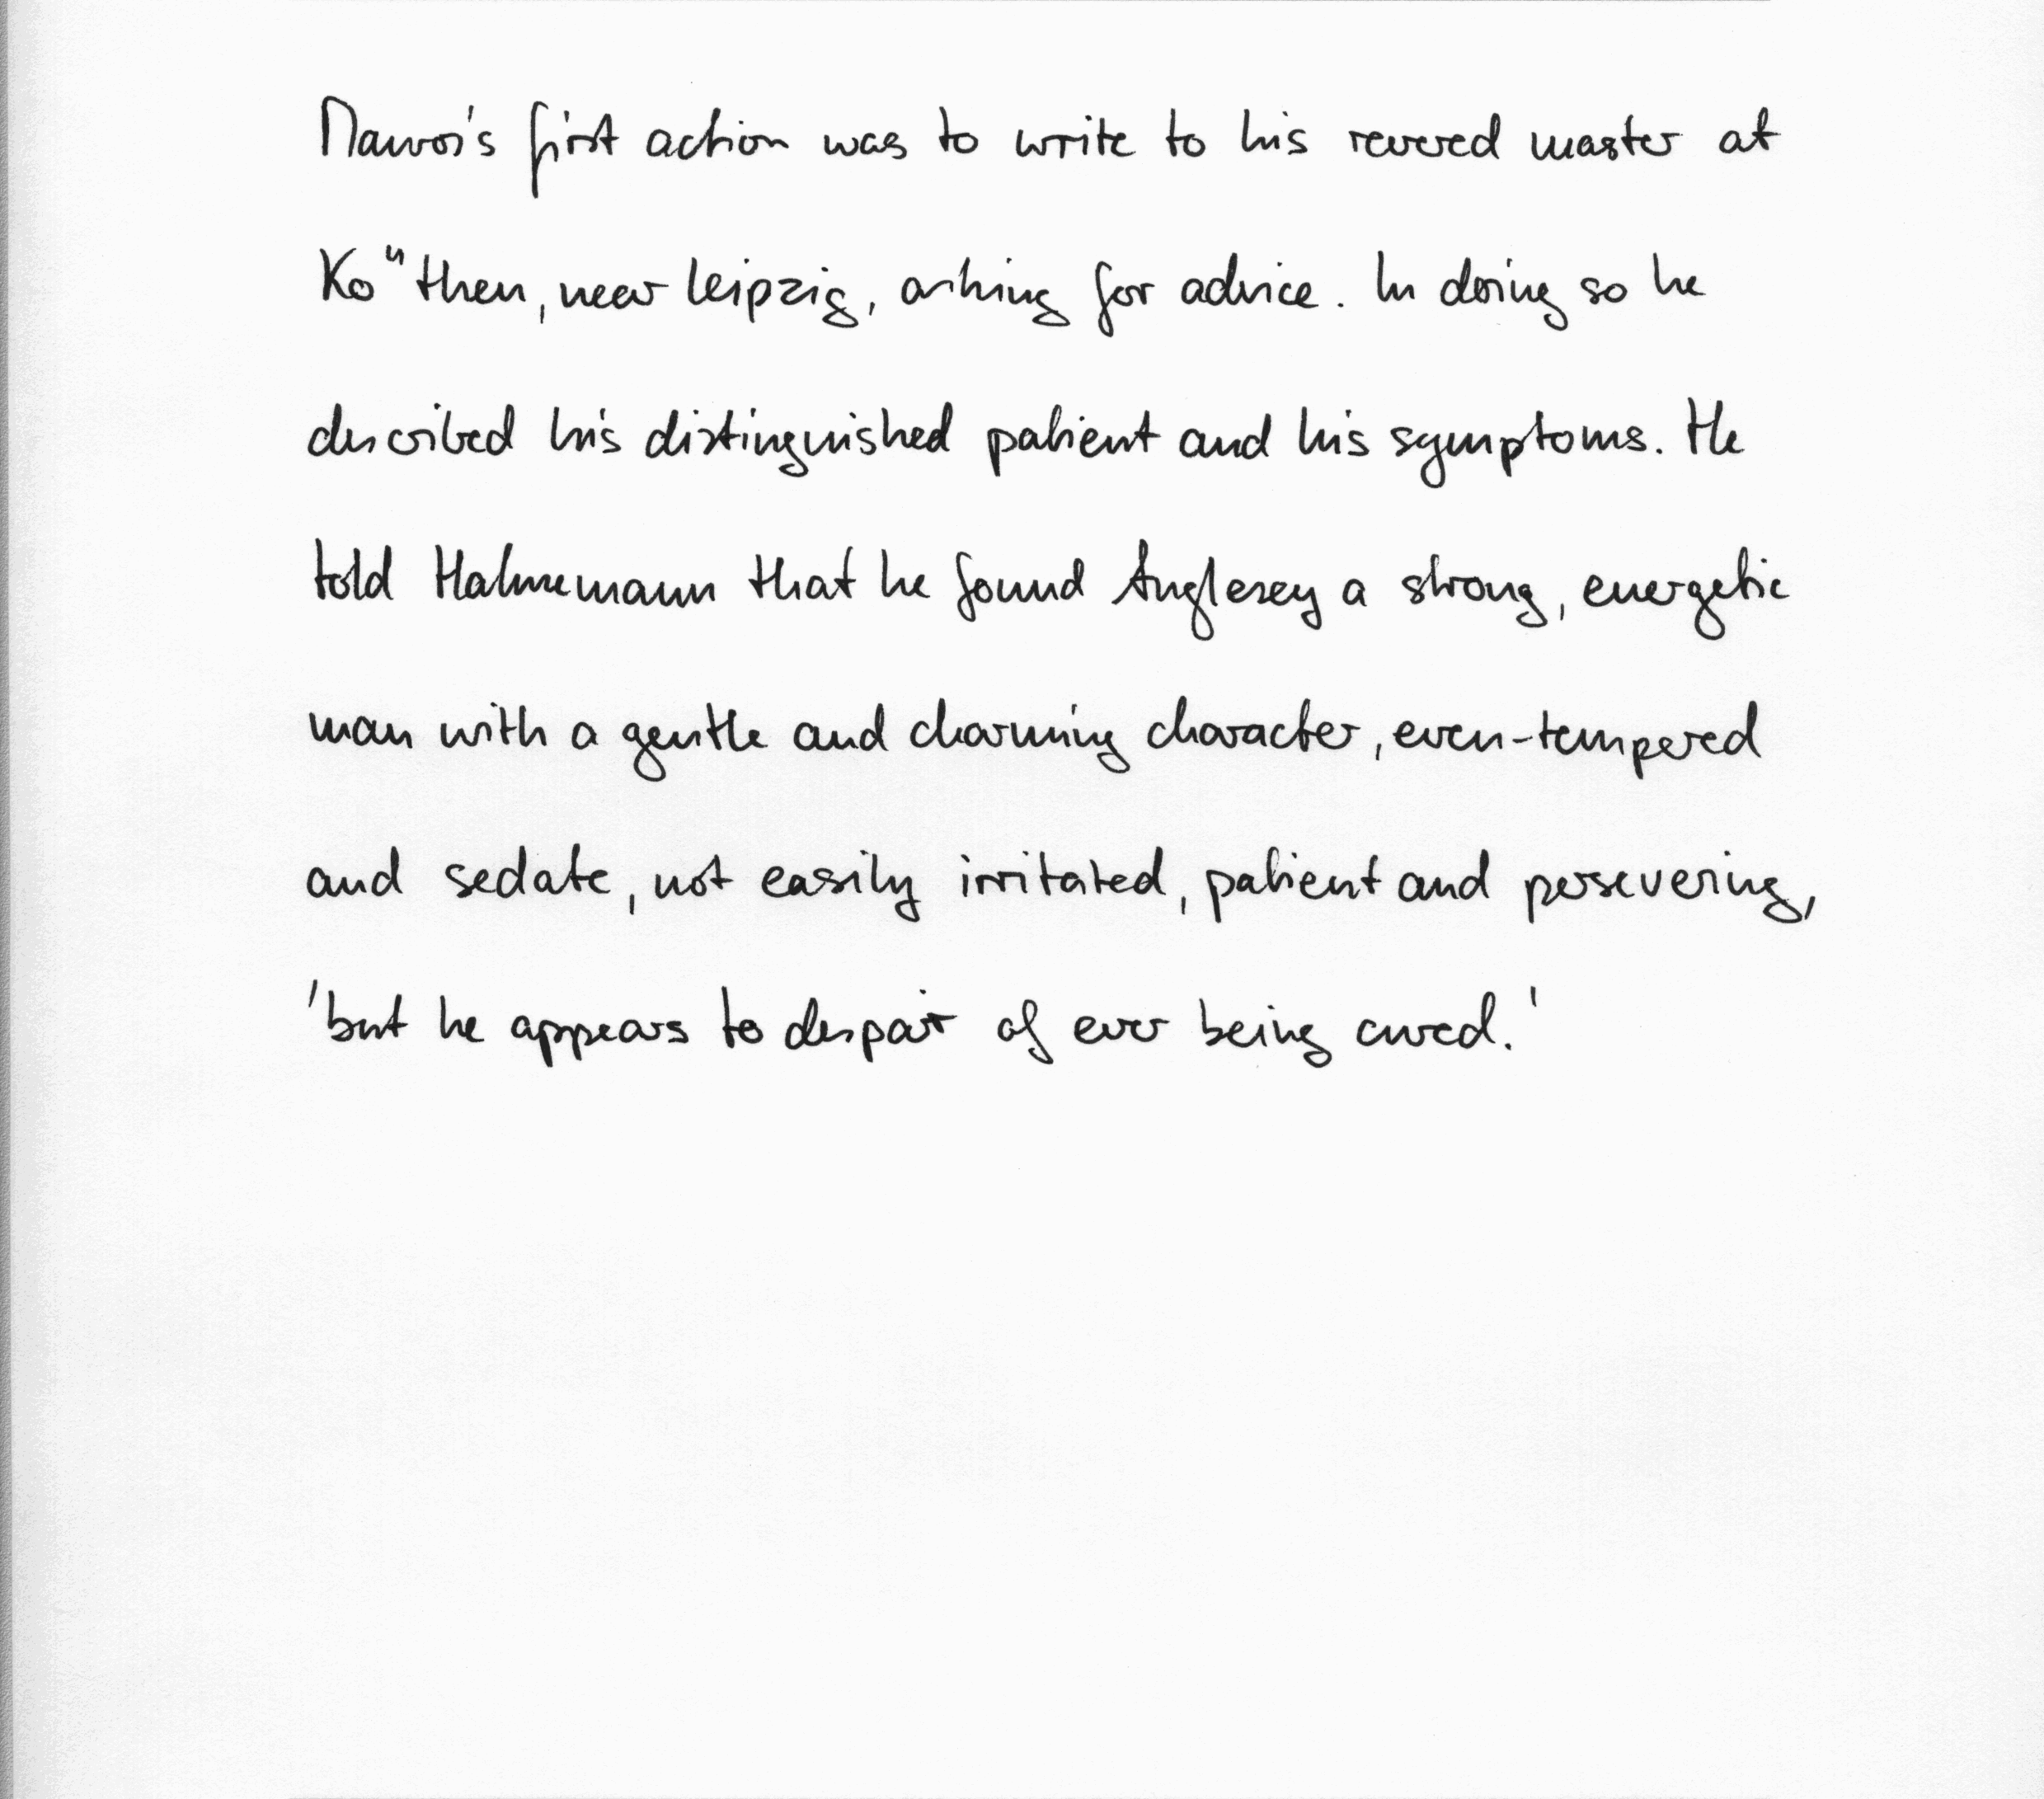 Mauroi's first action was to write to his revered master at
Ko"then, near Leipzig, asking for advice. In doing so he
described his distinguished patient and his symptoms. He
told Hahnemann that he found Anglesey a strong, energetic
man with a gentle and charming character, even-tempered
and sedate, not easily irritated, patient and persevering,
'but he appears to despair of ever being cured.'